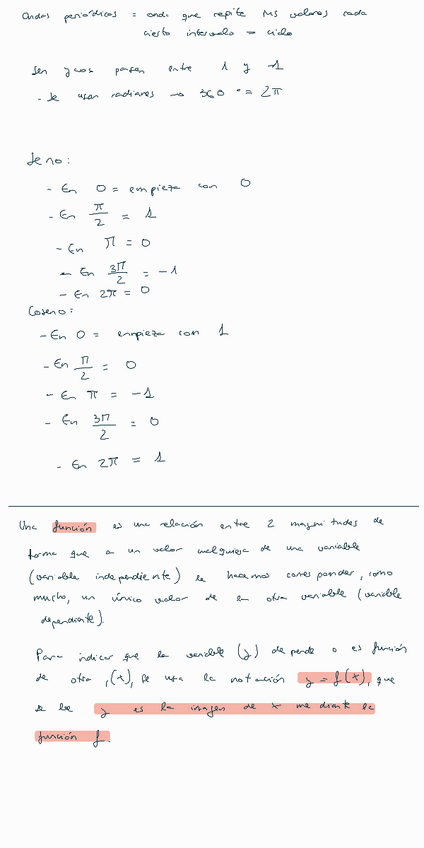 Ondas periódicas = onda que repite sus valores cada
cierto intervalo = ciclo
Sen y cos pasan entre 1 y -1
- Se usan radianes → 360° = 2π
Seno:
- En 0 = empieza con 0
- En π/2 = 1
- En π = 0
- En 3π/2 = -1
- En 2π = 0
Coseno:
- En 0 = empieza con 1
- En π/2 = 0
- En π = -1
- En 3π/2 = 0
- En 2π = 1
Una función es una relación entre 2 magnitudes de
forma que a un valor cualquiera de una variable
(variable independiente) le hacemos corresponder, como
mucho, un único valor de la otra variable (variable
dependiente).
Para indicar que la variable (y) depende o es función
de otra, (x), se usa la notación y = f(x), que
se lee y es la imagen de x mediante la
función f.